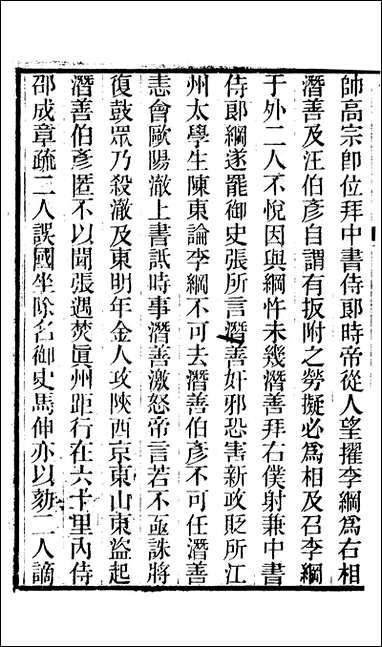 帥高宗卽位拜中書侍郞時帝從人望擢李綱爲右相
潛善及汪伯彥自謂有扳附之勞擬必爲相及召李綱
于外二人不悅因與綱忤未幾潛善拜右僕射兼中書
侍郞綱遂罷御史張所言潛善奸邪恐害新政貶所江
州太學生陳東論李綱不可去潛善伯彥不可任潛善
恚會歐陽澈上書詆時事潛善激怒帝言若不亟誅將
復鼓眾乃殺澈及東明年金人攻陝西京東山東盜起
潛善伯彥匿不以聞張遇焚眞州距行在六十里內侍
邵成章疏二人誤國坐除名御史馬伸亦以劾二人謫